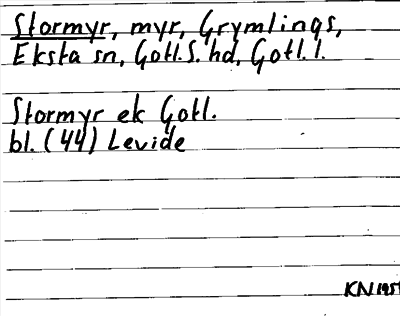 Stormyr, myr, Grymlings,
Eksta sn, Gotl.S. hd, Gotl. l.
Stormyr ek Gotl.
bl. (44) Levide